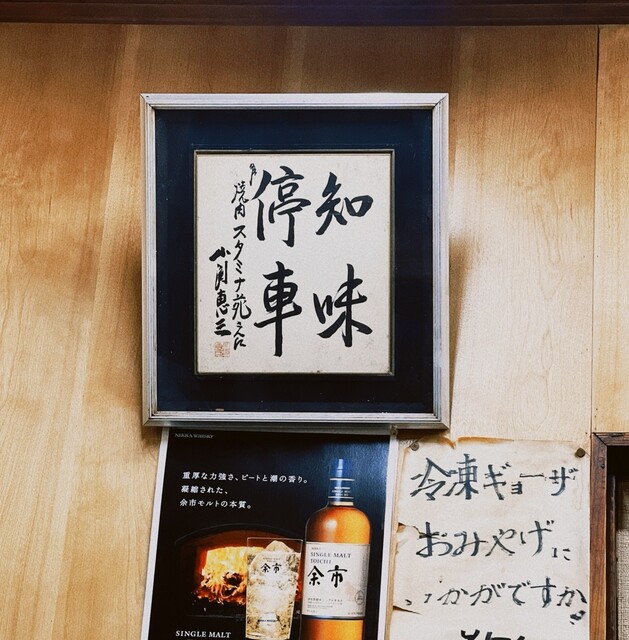 知味
停車
焼肉 スタミナ苑さん江
小月恵三
NIKKA WHISKY
重厚な力強さ、ピートと潮の香り。
凝縮された、
余市モルトの本質。
SINGLE MALT
YOICHI
余市
SINGLE MALT
冷凍ギョーザ
おみやげに
いかがですか